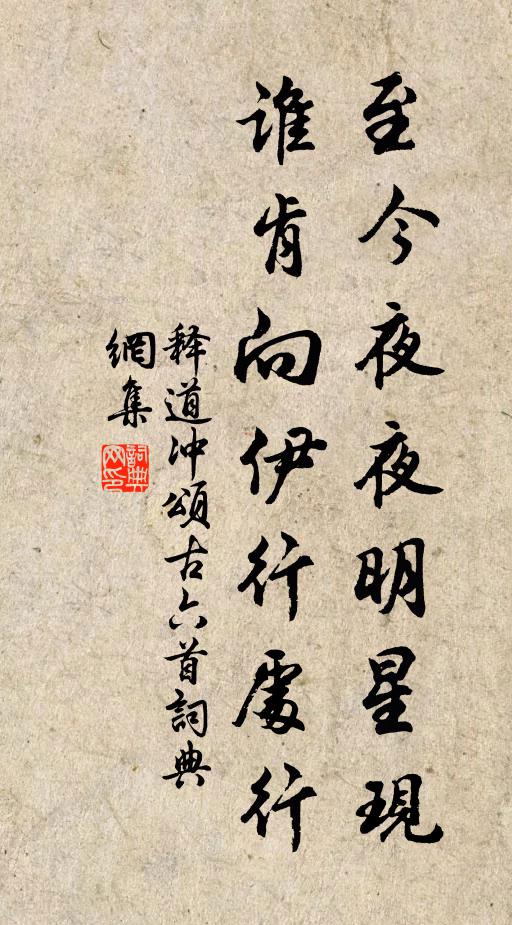 至今夜夜明星現
誰肯向伊行處行
释道冲頌古六首詞典
網集
詞典
网印